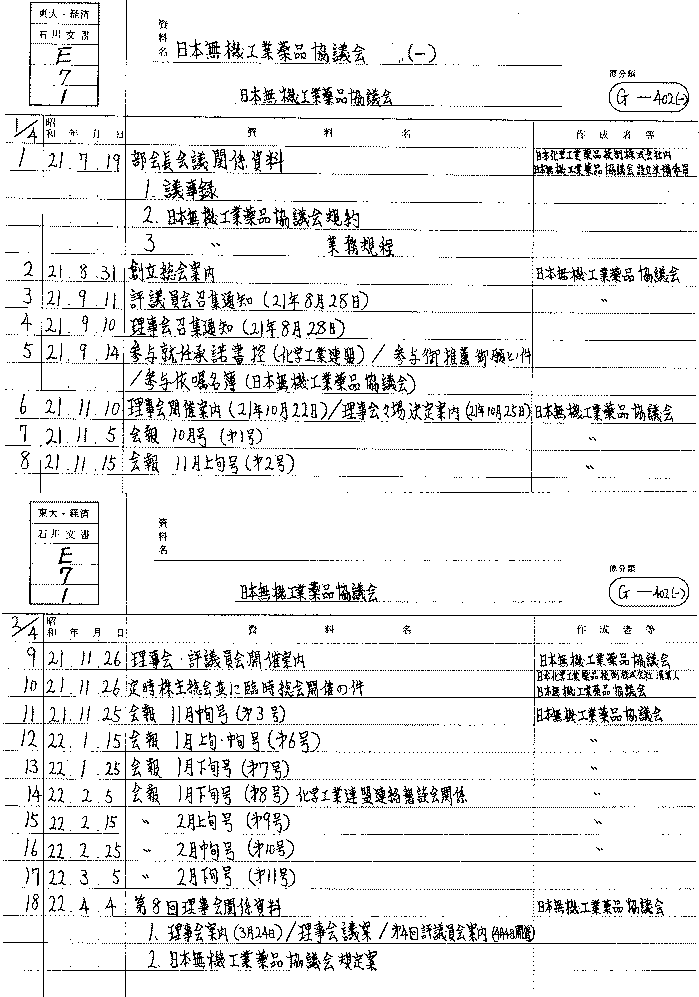 東大・経済
石川文書
E
7
1
資料名 日本無機工業薬品協議会 (一)
日本無機工業薬品協議会
原分類
G-402(一)
1/4 昭和 年 月 日 資料名 作成者等
1 21.7.19 部会長会議関係資料 日本化学工業薬品統制株式会社内
日本無機工業薬品協議会設立準備委員
1. 議事録
2. 日本無機工業薬品協議会規約
3 〃 業務規程
2 21.8.31 創立総会案内 日本無機工業薬品協議会
3 21.9.11 評議員会召集通知(21年8月28日) 〃
4 21.9.10 理事会召集通知(21年8月28日)
5 21.9.14 参与就任承諾書控(化学工業連盟)/参与御推薦御願ヒ件
/参与依嘱名簿(日本無機工業薬品協議会)
6 21.11.10 理事会開催案内(21年10月22日)/理事会々場決定案内(21年10月25日) 日本無機工業薬品協議会
7 21.11.5 会報 10月号(第1号) 〃
8 21.11.15 会報 11月上旬号(第2号) 〃
東大・経済
石川文書
E
7
1
資料名
日本無機工業薬品協議会
原分類
G-402(一)
3/4 昭和 年 月 日 資料名 作成者等
9 21.11.26 理事会・評議員会開催案内 日本無機工業薬品協議会
10 21.11.26 定時株主総会並に臨時総会開催の件 日本化学工業薬品統制株式会社清算人
日本無機工業薬品協議会
11 21.11.25 会報 11月中旬号(第3号) 日本無機工業薬品協議会
12 22.1.15 会報 1月上旬・中旬号(第6号) 〃
13 22.1.25 会報 1月下旬号(第7号) 〃
14 22.2.5 会報 1月下旬号(第8号) 化学工業連盟連絡懇談会関係 〃
15 22.2.15 〃 2月上旬号(第9号) 〃
16 22.2.25 〃 2月中旬号(第10号) 〃
17 22.3.5 〃 2月下旬号(第11号)
18 22.4.4 第8回理事会関係資料 日本無機工業薬品協議会
1. 理事会案内(3月24日)/理事会議案/第4回評議員会案内(4月4日開催)
2. 日本無機工業薬品協議会規定案